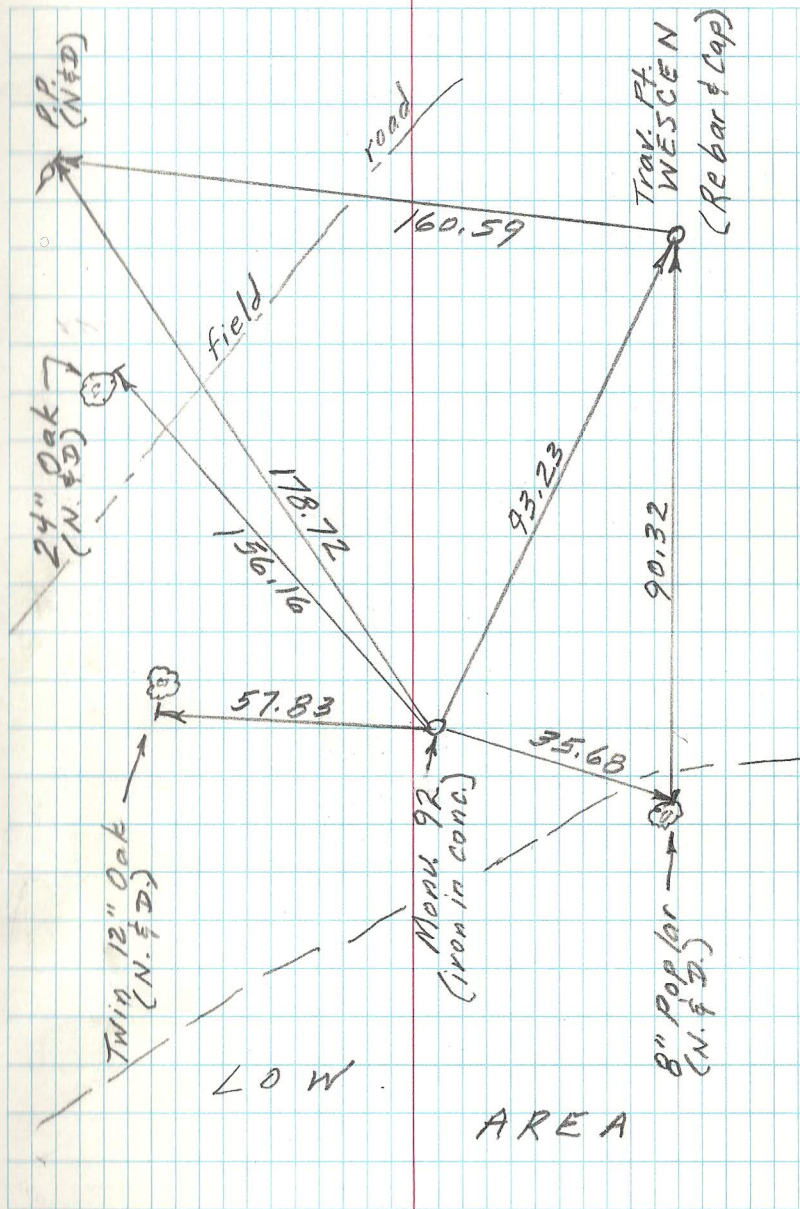 P.P.
(N & D)
road
Trav. Pt.
WESCEN
(Rebar & Cap)
160.59
field
24" Oak
(N. & D.)
178.72
156.16
93.23
90.32
Twin 12" Oak
(N. & D.)
57.83
35.68
Monu. 92
(iron in conc.)
8" Poplar
(N. & D.)
LOW
AREA